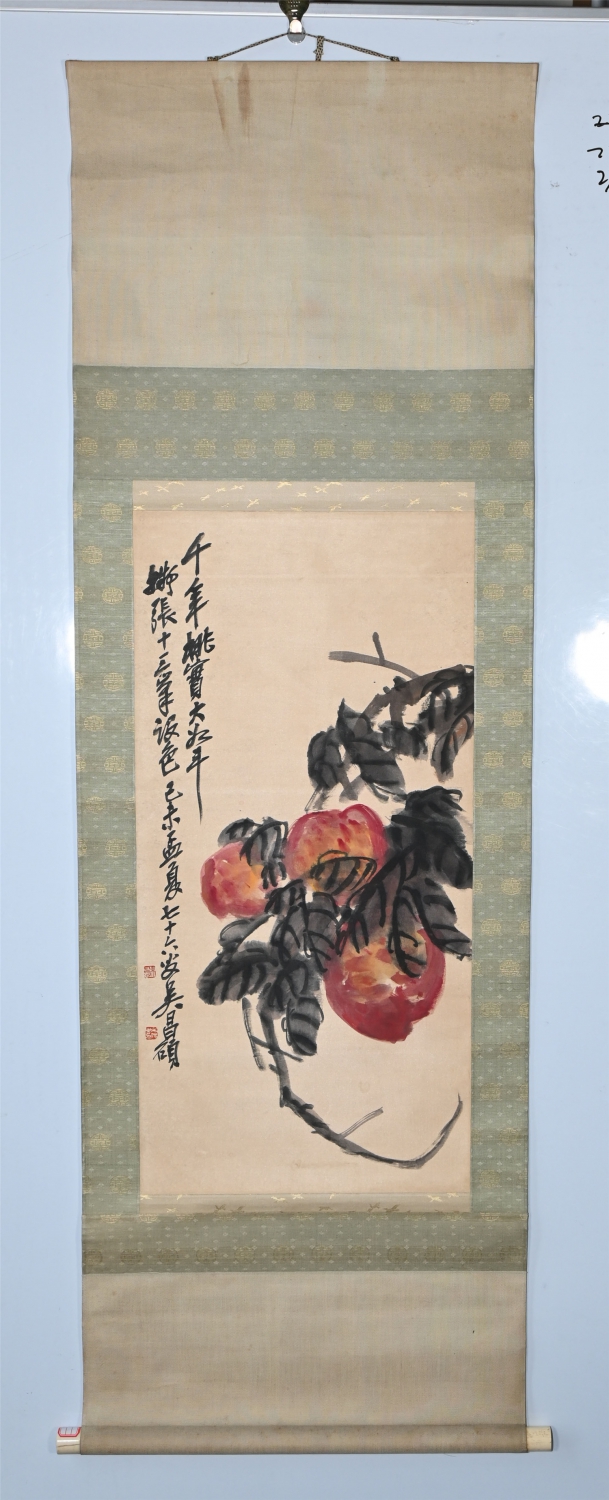 千年桃實大如斗
擬張十三峯設色己未孟夏七十六叟吳昌碩